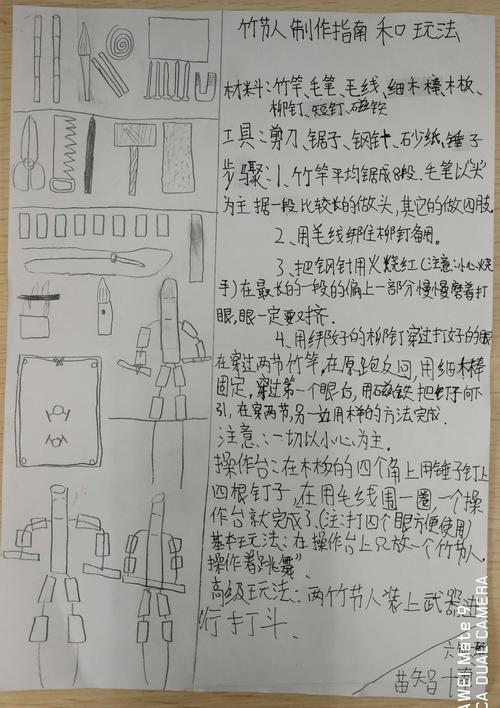 竹节人制作指南和玩法
材料:竹竿、毛笔、毛线、细木棒、木板、
柳钉、短钉、磁铁
工具:剪刀、锯子、钢针、砂纸、锤子
步骤:1、竹竿平均锯成8段、毛笔以"头"
为主据一段比较长的做头,其它的做四肢。
2、用毛线绑住柳钉备用。
3、把钢针用火烧红(注意:小心烧
手)在最长的一段的偏上一部分慢慢磨着打
眼,眼一定要对齐.
4、用绑好的柳钉穿过打好的眼
在穿过两节竹竿,在原路反回,用细木棒
固定,穿过第一个眼后,用磁铁把钉子向下
引,在穿两节,另一边用同样的方法完成.
注意:一切以小心为主.
操作台:在木板的四个角上用锤子钉上
四根钉子,在用毛线围一圈,一个操
作台就完成了.(注:打四个眼方便使用)
基本玩法:在操作台上只放一个竹节人,
操作着"跳舞"
高级玩法:两竹节人装上武器进
行打斗.
苗智